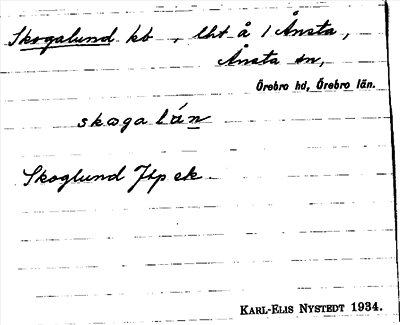 Skogalund kb , lht å 1 Ånsta,
Ånsta sn,
Örebro hd, Örebro län.
skogalán
Skoglund Jtp ek.
KARL-ELIS NYSTEDT 1934.